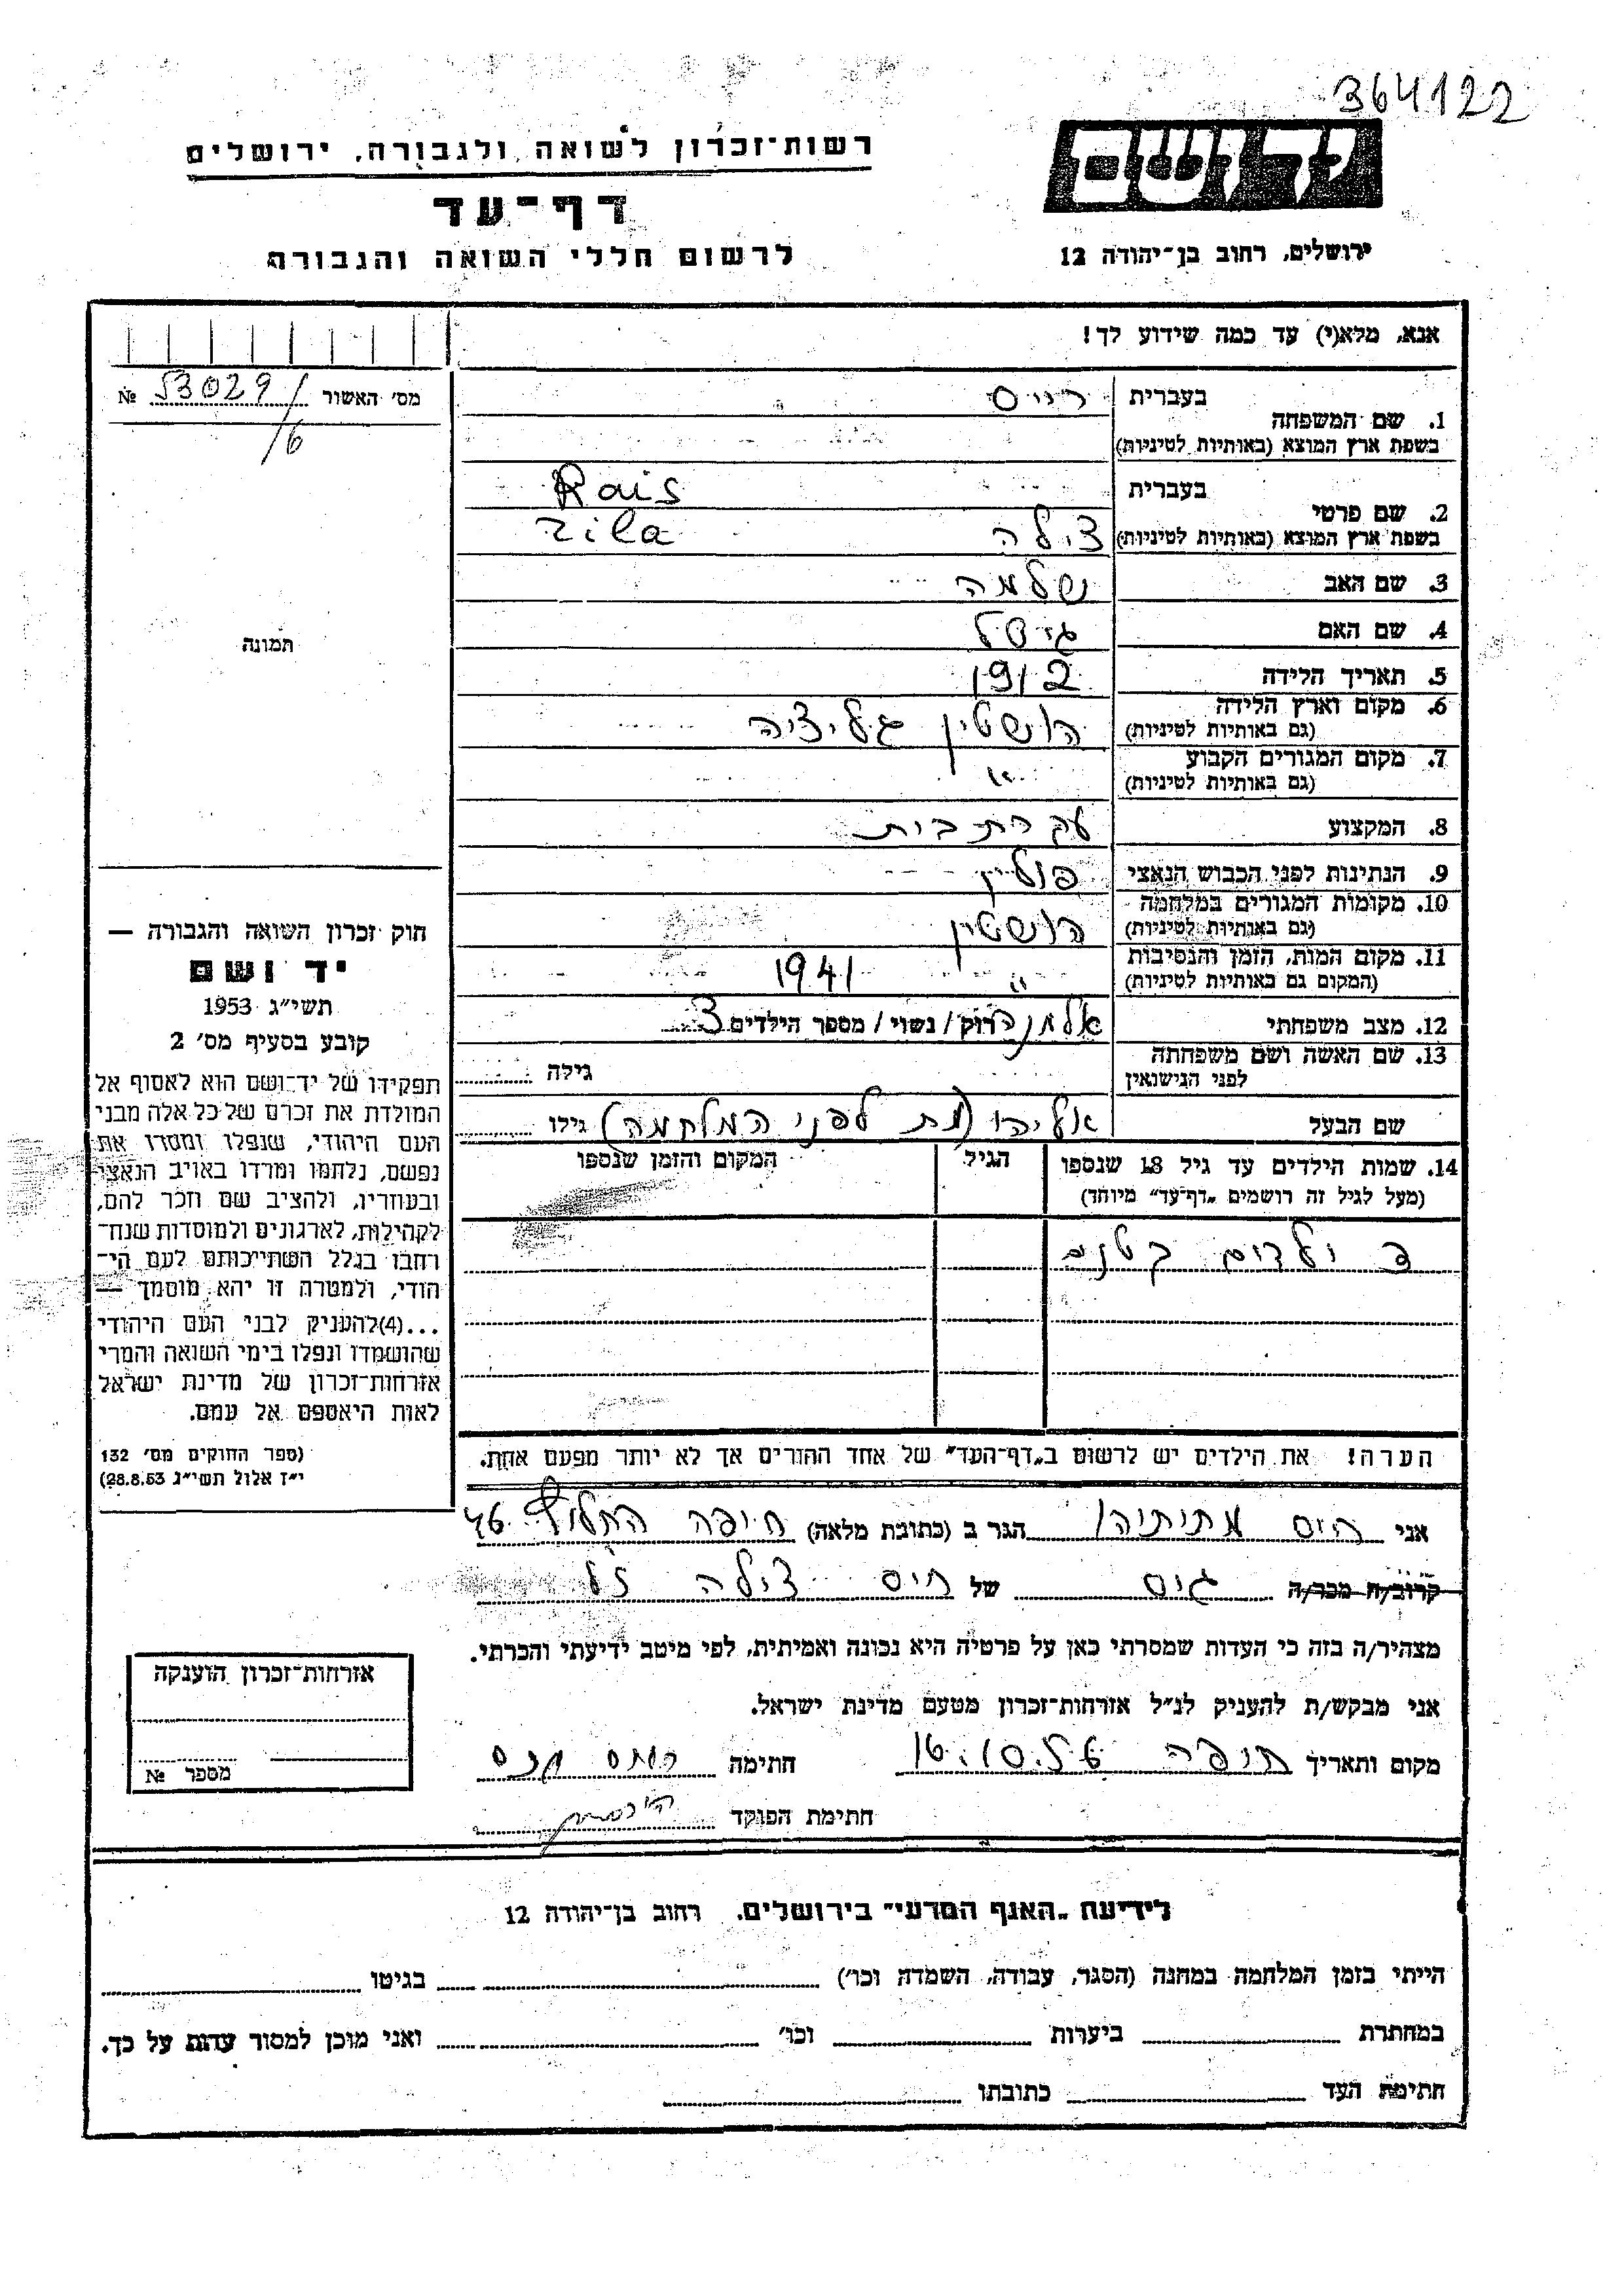 364122
יד ושם
רשות־זכרון לשואה ולגבורה, ירושלים
דף־עד
לרשום חללי השואה והגבורה
ירושלים, רחוב בן־יהודה 12
אנא, מלא(י) עד כמה שידוע לך!
מס׳ האשור 53029/6 №
1. שם המשפחה
בעברית רייס
בשפת ארץ המוצא (באותיות לטיניות)
Rais
2. שם פרטי
בעברית
בשפת ארץ המוצא (באותיות לטיניות) צילה Zila
3. שם האב
4. שם האם
5. תאריך הלידה 1912
6. מקום וארץ הלידה
(גם באותיות לטיניות) גליציה
7. מקום המגורים הקבוע
(גם באותיות לטיניות) "
8. המקצוע עקרת בית
9. הנתינות לפני הכבוש הנאצי פולין
10. מקומות המגורים במלחמה
(גם באותיות לטיניות)
11. מקום המות, הזמן והנסיבות
(המקום גם באותיות לטיניות) " 1941
12. מצב משפחתי אלמנה רווק / נשוי / מספר הילדים 3
13. שם האשה ושם משפחתה
לפני הנישואין
גילה
שם הבעל אליהו (מת לפני המלחמה) גילו
14. שמות הילדים עד גיל 18 שנספו
(מעל לגיל זה רושמים „דף־עד” מיוחד)
הגיל
המקום והזמן שנספו
3 ילדים קטנים
הערה! את הילדים יש לרשום ב„דף־העד” של אחד ההורים אך לא יותר מפעם אחת.
תמונה
חוק זכרון השואה והגבורה —
יד ושם
תשי״ג 1953
קובע בסעיף מס׳ 2
תפקידו של יד־ושם הוא לאסוף אל
המולדת את זכרם של כל אלה מבני
העם היהודי, שנפלו ומסרו את
נפשם, נלחמו ומרדו באויב הנאצי
ובעוזריו, ולהציב שם וזכר להם,
לקהילות, לארגונים ולמוסדות שנח־
רבו בגלל השתייכותם לעם הי־
הודי, ולמטרה זו יהא מוסמך —
...(4) להעניק לבני העם היהודי
שהושמדו ונפלו בימי השואה והמרי
אזרחות־זכרון של מדינת ישראל
לאות היאספם אל עמם.
(ספר החוקים מס׳ 132
י״ז אלול תשי״ג 28.8.53)
אני רייס מתיתיהו הגר ב (כתובת מלאה) חיפה החלוץ 46
קרוב/ה מכר/ה גיס של רייס צילה ז״ל
מצהיר/ה בזה כי העדות שמסרתי כאן על פרטיה היא נכונה ואמיתית, לפי מיטב ידיעתי והכרתי.
אני מבקש/ת להעניק לנ״ל אזרחות־זכרון מטעם מדינת ישראל.
מקום ותאריך חיפה 16.10.56 חתימה
חתימת הפוקד
אזרחות־זכרון הוענקה
מספר №
לידיעת „האגף המדעי” בירושלים, רחוב בן־יהודה 12
הייתי בזמן המלחמה במחנה (הסגר, עבודה, השמדה וכו׳) בגיטו
במחתרת ביערות וכו׳ ואני מוכן למסור עדות על כך.
חתימת העד כתובתו